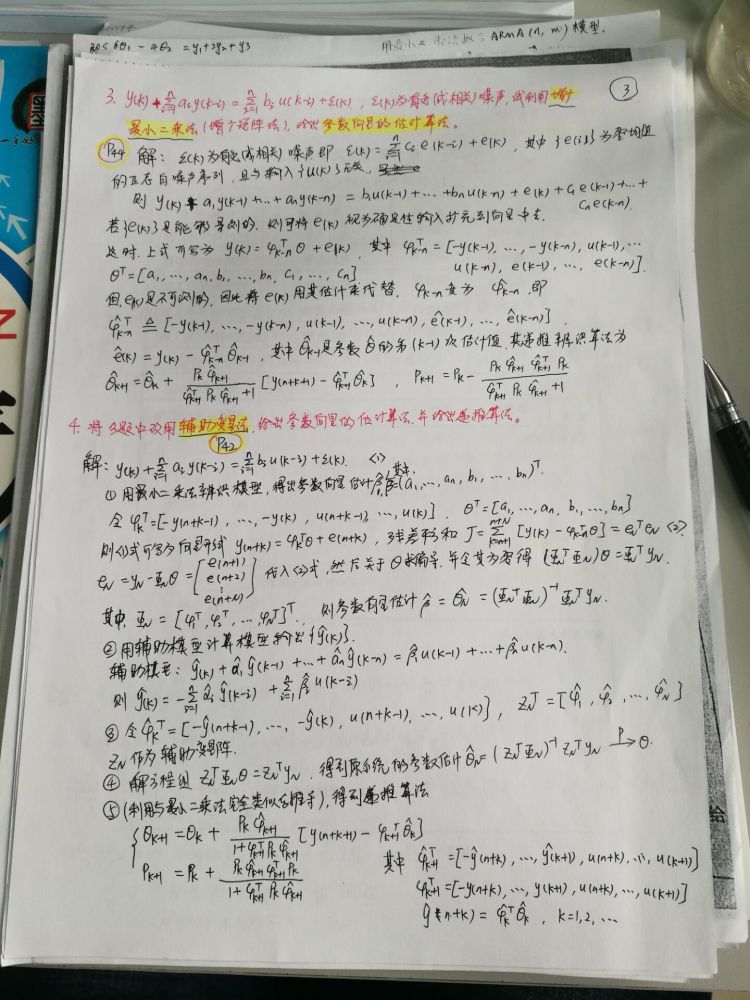 即 6θ₁ - 4θ₂ = y₁+2y₂+y3
用最小二乘法 ARMA(n, m) 模型.
③
3. y(k) + Σᵢ₌₁ⁿ aᵢ y(k-i) = Σᵢ₌₁ⁿ bᵢ u(k-i) + ε(k), ε(k)为有色(或相关)噪声, 试利用增广
最小二乘法(增广矩阵法), 给出参数向量的估计算法。
P44
解: ε(k)为有色(或相关)噪声即 ε(k) = Σᵢ₌₁ⁿ cᵢ e(k-i) + e(k), 其中{e(i)}为零均值
的正态白噪声序列, 且与输入{u(k)}无关,
则 y(k) + a₁y(k-1) + … + aₙy(k-n) = b₁u(k-1) + … + bₙu(k-n) + e(k) + c₁e(k-1) + … +
cₙe(k-n).
若{e(k)}是能够量测的, 则可将e(k)视为确定性输入扩充到向量中去.
这时, 上式可写为 y(k) = φₖ₋ₙᵀ θ + e(k), 其中 φₖ₋ₙᵀ = [-y(k-1), …, -y(k-n), u(k-1), …
u(k-n), e(k-1), …, e(k-n)].
θᵀ = [a₁, …, aₙ, b₁, …, bₙ, c₁, …, cₙ]
但e(k)是不可测的, 因此将e(k)用其估计来代替, φₖ₋ₙ变为 φ̂ₖ₋ₙ, 即
φ̂ₖ₋ₙᵀ ≜ [-y(k-1), …, -y(k-n), u(k-1), …, u(k-n), ê(k-1), …, ê(k-n)].
ê(k) = y(k) - φ̂ₖ₋ₙᵀ θ̂ₖ₋₁, 其中θ̂ₖ₋₁是参数θ̂的第(k-1)次估计值. 其递推辨识算法为
θ̂ₖ₊₁ = θ̂ₖ + Pₖφ̂ₖ₊₁ / (φ̂ₖ₊₁ᵀ Pₖ φ̂ₖ₊₁ + 1) [y(n+k+1) - φ̂ₖ₊₁ᵀ θ̂ₖ], Pₖ₊₁ = Pₖ - Pₖ φ̂ₖ₊₁ φ̂ₖ₊₁ᵀ Pₖ / (φ̂ₖ₊₁ᵀ Pₖ φ̂ₖ₊₁ + 1)
4. 将3题中改用辅助变量法, 给出参数向量的估计算法, 并给出递推算法。
P42
解: y(k) + Σᵢ₌₁ⁿ aᵢ y(k-i) = Σᵢ₌₁ⁿ bᵢ u(k-i) + ε(k). <1>
① 用最小二乘法辨识模型, 得出参数向量估计 ρ̂, 其中 ρ̂ = (a₁, …, aₙ, b₁, …, bₙ)ᵀ.
令 φₖᵀ = [-y(n+k-1), …, -y(k), u(n+k-1), …, u(k)]. θᵀ = [a₁, …, aₙ, b₁, …, bₙ]
则<1>式可写为向量形式 y(n+k) = φₖᵀθ + e(n+k), 残差平方和 J = Σₖ₌ₙ₊₁ⁿ⁺ᴺ [y(k) - φₖ₋ₙᵀθ] = eₙᵀeₙ <2>.
e_N = y_N - Φ_Nθ = [e(n+1) e(n+2) ⋮ e(n+N)] 代入<2>式, 然后关于θ求偏导, 并令其为零得 (Φ_Nᵀ Φ_N)θ = Φ_Nᵀ y_N.
其中, Φ_N = [φ₁ᵀ, φ₂ᵀ, … φ_Nᵀ]ᵀ, 则参数向量估计 ρ̂ = θ̂_N = (Φ_Nᵀ Φ_N)⁻¹ Φ_Nᵀ y_N.
② 用辅助模型计算模型输出{ŷ(k)}.
辅助模型: ŷ(k) + α̂₁ŷ(k-1) + … + α̂ₙŷ(k-n) = β̂₁u(k-1) + … + β̂ₙu(k-n).
则 ŷ(k) = -Σᵢ₌₁ⁿ α̂ᵢ ŷ(k-i) + Σᵢ₌₁ⁿ β̂ᵢ u(k-i)
③ 令 φ̂ₖᵀ = [-ŷ(n+k-1), …, -ŷ(k), u(n+k-1), …, u(k)], Z_Nᵀ = [φ̂₁, φ̂₂, …, φ̂_N]
Z_N 作为辅助变量阵.
④ 解方程组 Z_Nᵀ Φ_N θ = Z_Nᵀ y_N, 得到原系统的参数估计 θ̂_N = (Z_Nᵀ Φ_N)⁻¹ Z_Nᵀ y_N →ᴾ θ.
⑤ (利用与最小二乘法完全类似的推导), 得到递推算法
{ θ̂ₖ₊₁ = θ̂ₖ + Pₖ φ̂ₖ₊₁ / (1 + φₖ₊₁ᵀ Pₖ φ̂ₖ₊₁) [y(n+k+1) - φₖ₊₁ᵀ θ̂ₖ]
Pₖ₊₁ = Pₖ + Pₖ φ̂ₖ₊₁ φₖ₊₁ᵀ Pₖ / (1 + φₖ₊₁ᵀ Pₖ φ̂ₖ₊₁)
其中 φ̂ₖ₊₁ᵀ = [-ŷ(n+k), …, ŷ(k+1), u(n+k), …, u(k+1)]
φₖ₊₁ᵀ = [-y(n+k), …, y(k+1), u(n+k), …, u(k+1)]
ŷ(n+k) = φ̂ₖᵀ θ̂ₖ, k=1, 2, …